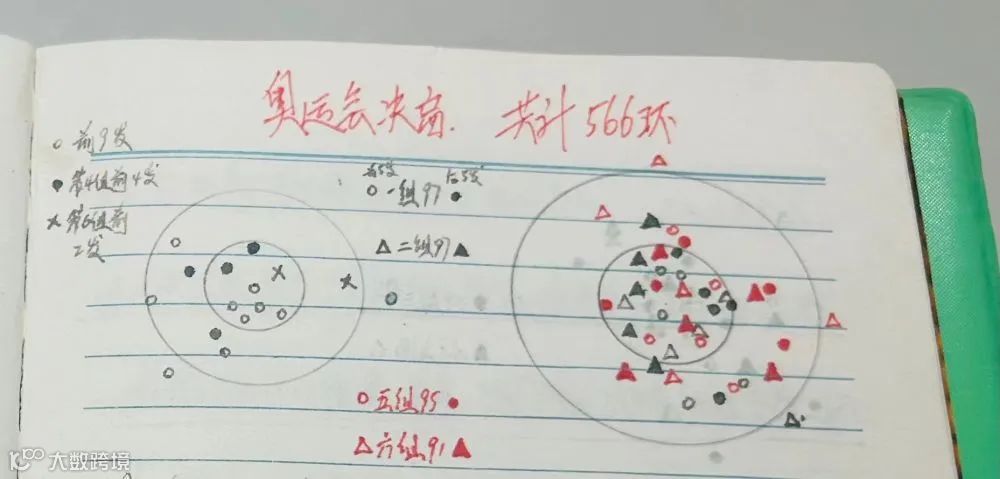 奥运会决商. 共计566环
○ 前9发
● 第4组前4发
× 第6组前
二发
前5发 后5发
○ 一组97 ●
△ 二组97 ▲
○ 五组95 ●
△ 六组91 ▲
大数跨境